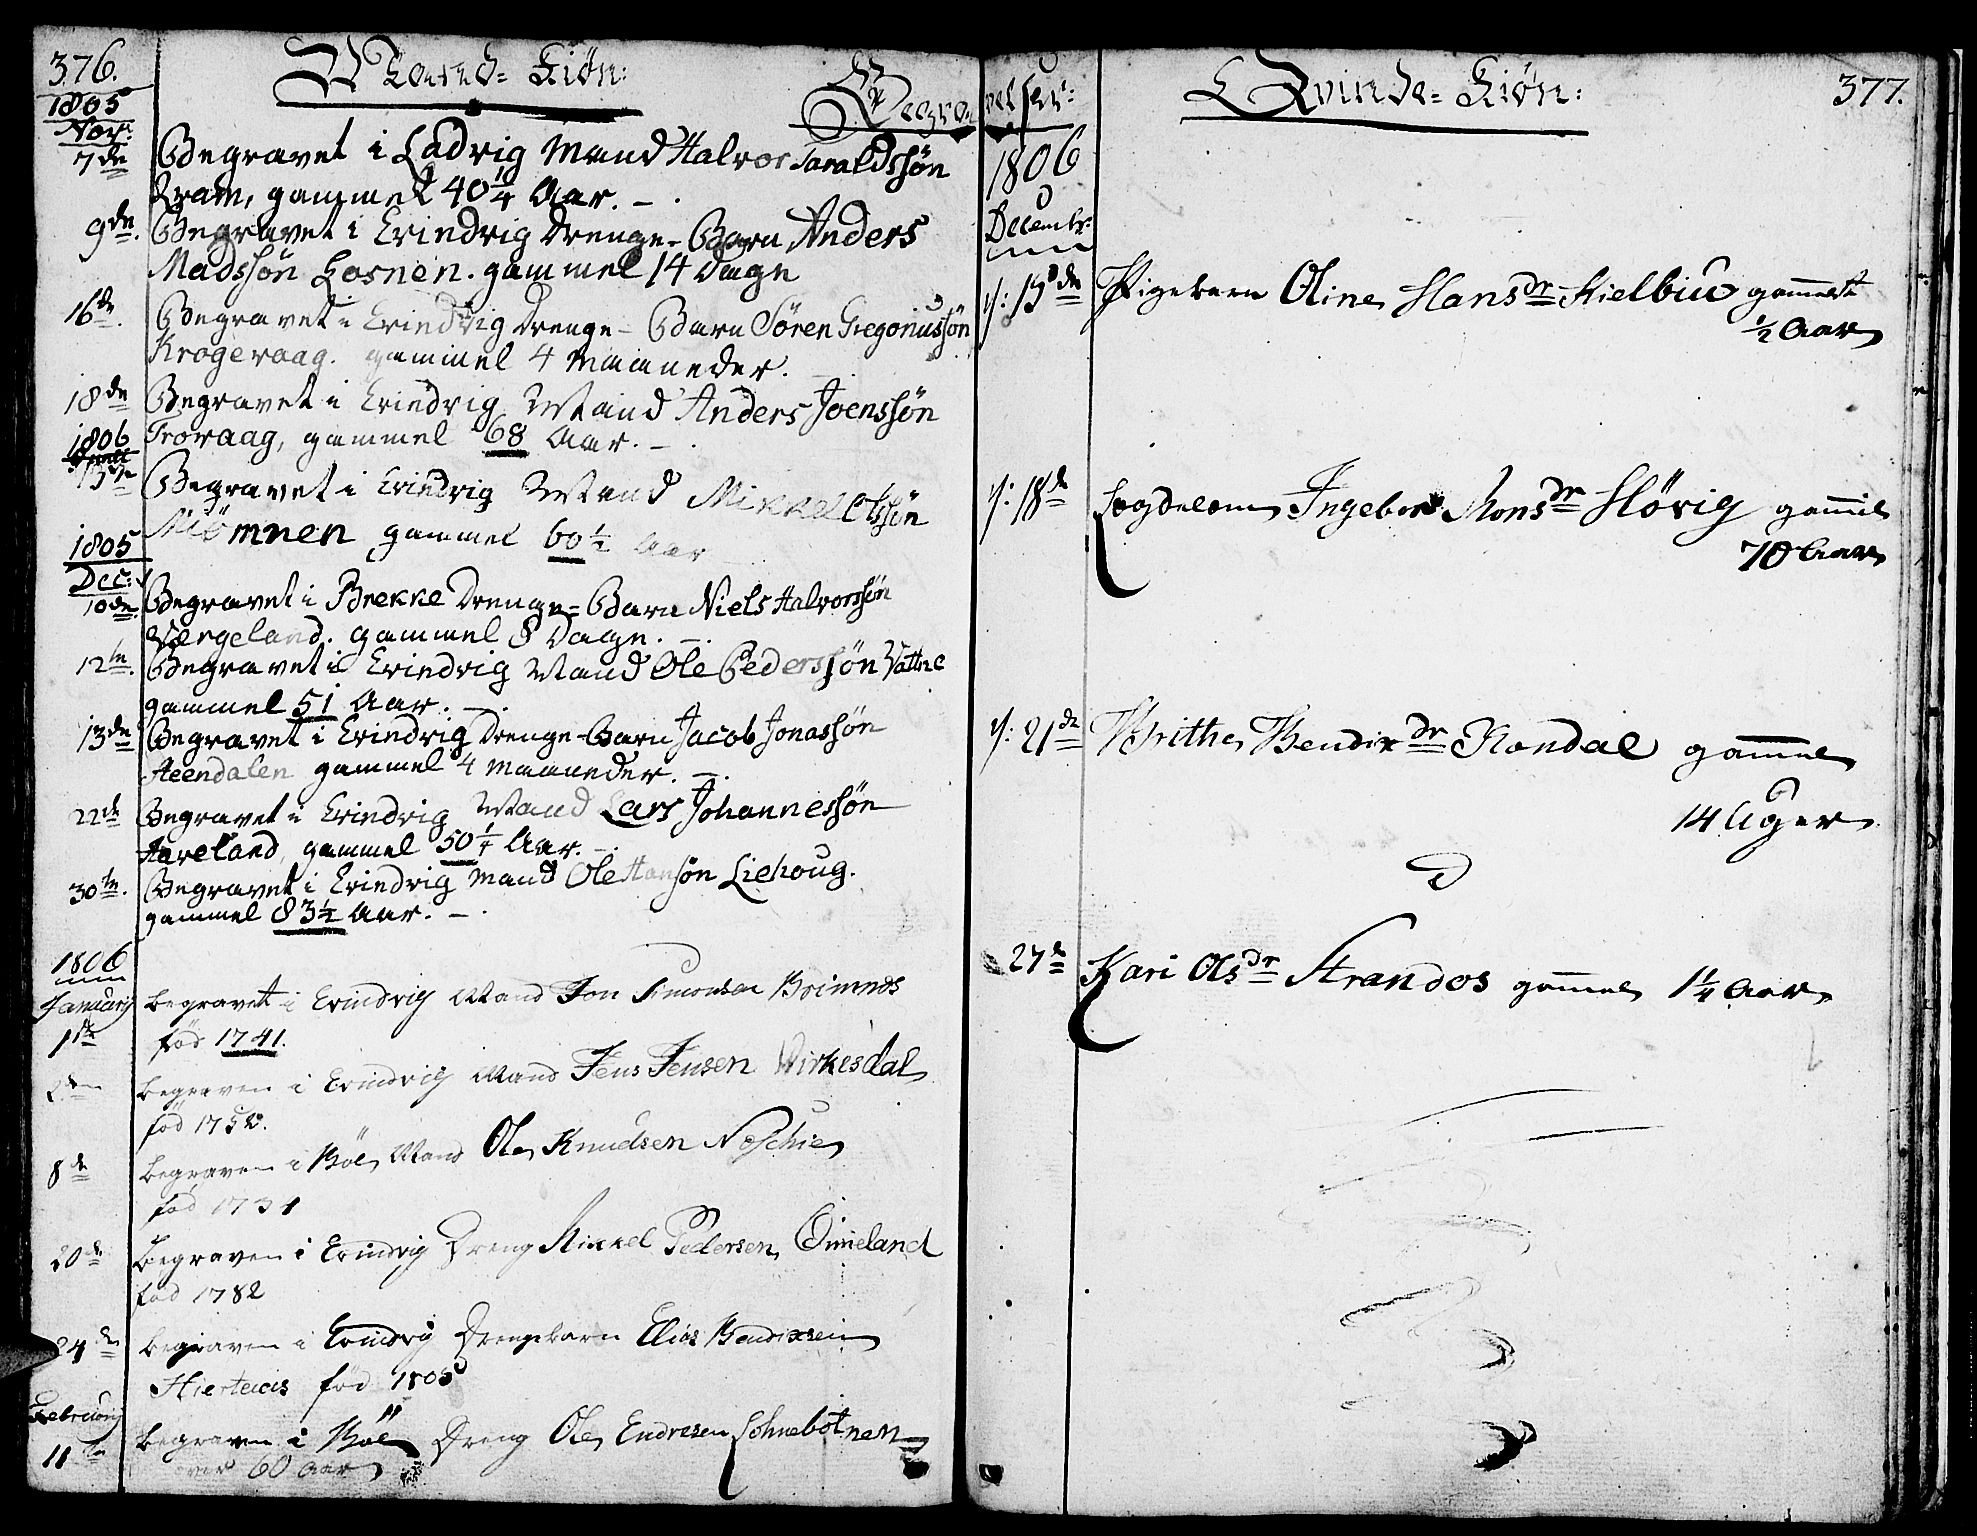 376.
Mand-Kiøn:
Begra-
1805
Nov:
7de Begravet i Ladvig Mand Halvor Haraldssøn
Dram, gammel 40 1/4 Aar. -.
9de Begravet i Evindvig Drenge-Barn Anders
Madssøn Losnen. gammel 14 Dage
16de Begravet i Evindvig Drenge-Barn Søren Gregoriussøn
Krogevaag. gammel 4 Maaneder.
18de Begravet i Evindvig Mand Anders Joenssøn
Trovaag, gammel 68 Aar. -.
1806
13de Begravet i Evindvig Mand Mikkel Olssøn
Miømnen gammel 60 1/2 Aar
1805
Dec:
10de Begravet i Brekke Drenge-Barn Niels Halvorssøn
Værgeland. gammel 8 Dage. -.
12te Begravet i Evindvig Mand Ole Pederssøn Vattne
gammel 51 Aar. -.
13de Begravet i Evindvig Drenge-Barn Jacob Jonassøn
gammel 4 Maaneder. -.
22de Begravet i Evindvig Mand Lars Johannessøn
Haveland, gammel 50 1/4 Aar. -.
30te Begravet i Evindvig Mand Ole Hanssøn Liehoug.
gammel 83 1/2 Aar. -.
1806
Januarij
1ste begravet i Evindvig Mand Jon Simonsen Brimnes
fød 1741.
2den begraven i Evindvig Mand Jens Jensen Virkesdal
fød 1750.
8de begraven i Bøe Mand Ole Knudsen Noschie
fød 1734
20de begraven i Evindvig Dreng Mikkel Pedersen Eimeland
fød 1782
24de begraven i Evindvig Drengebarn Elias Bendixsen
Hierteaas fød 1805
Februarij
11te begraven i Bøe Dreng Ole Endresen Sohnebotnen
over 60 Aar
velser:
Qvinde-Kiøn:
377.
1806
Decembr:
13de Pigebarn Oline Hansdr Kielbiu gammelt
1/2 Aar
18de Ingebor Monsdr Sløvig gammel
70 Aar
21de Brithe Bendixdr Nondal gammel
14 Uger
27de Kari Olsdr Strandos gammel 1 1/4 Aar